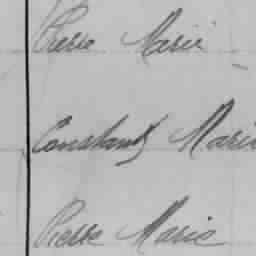 Pierre Marie
Constant Marie
Pierre Marie